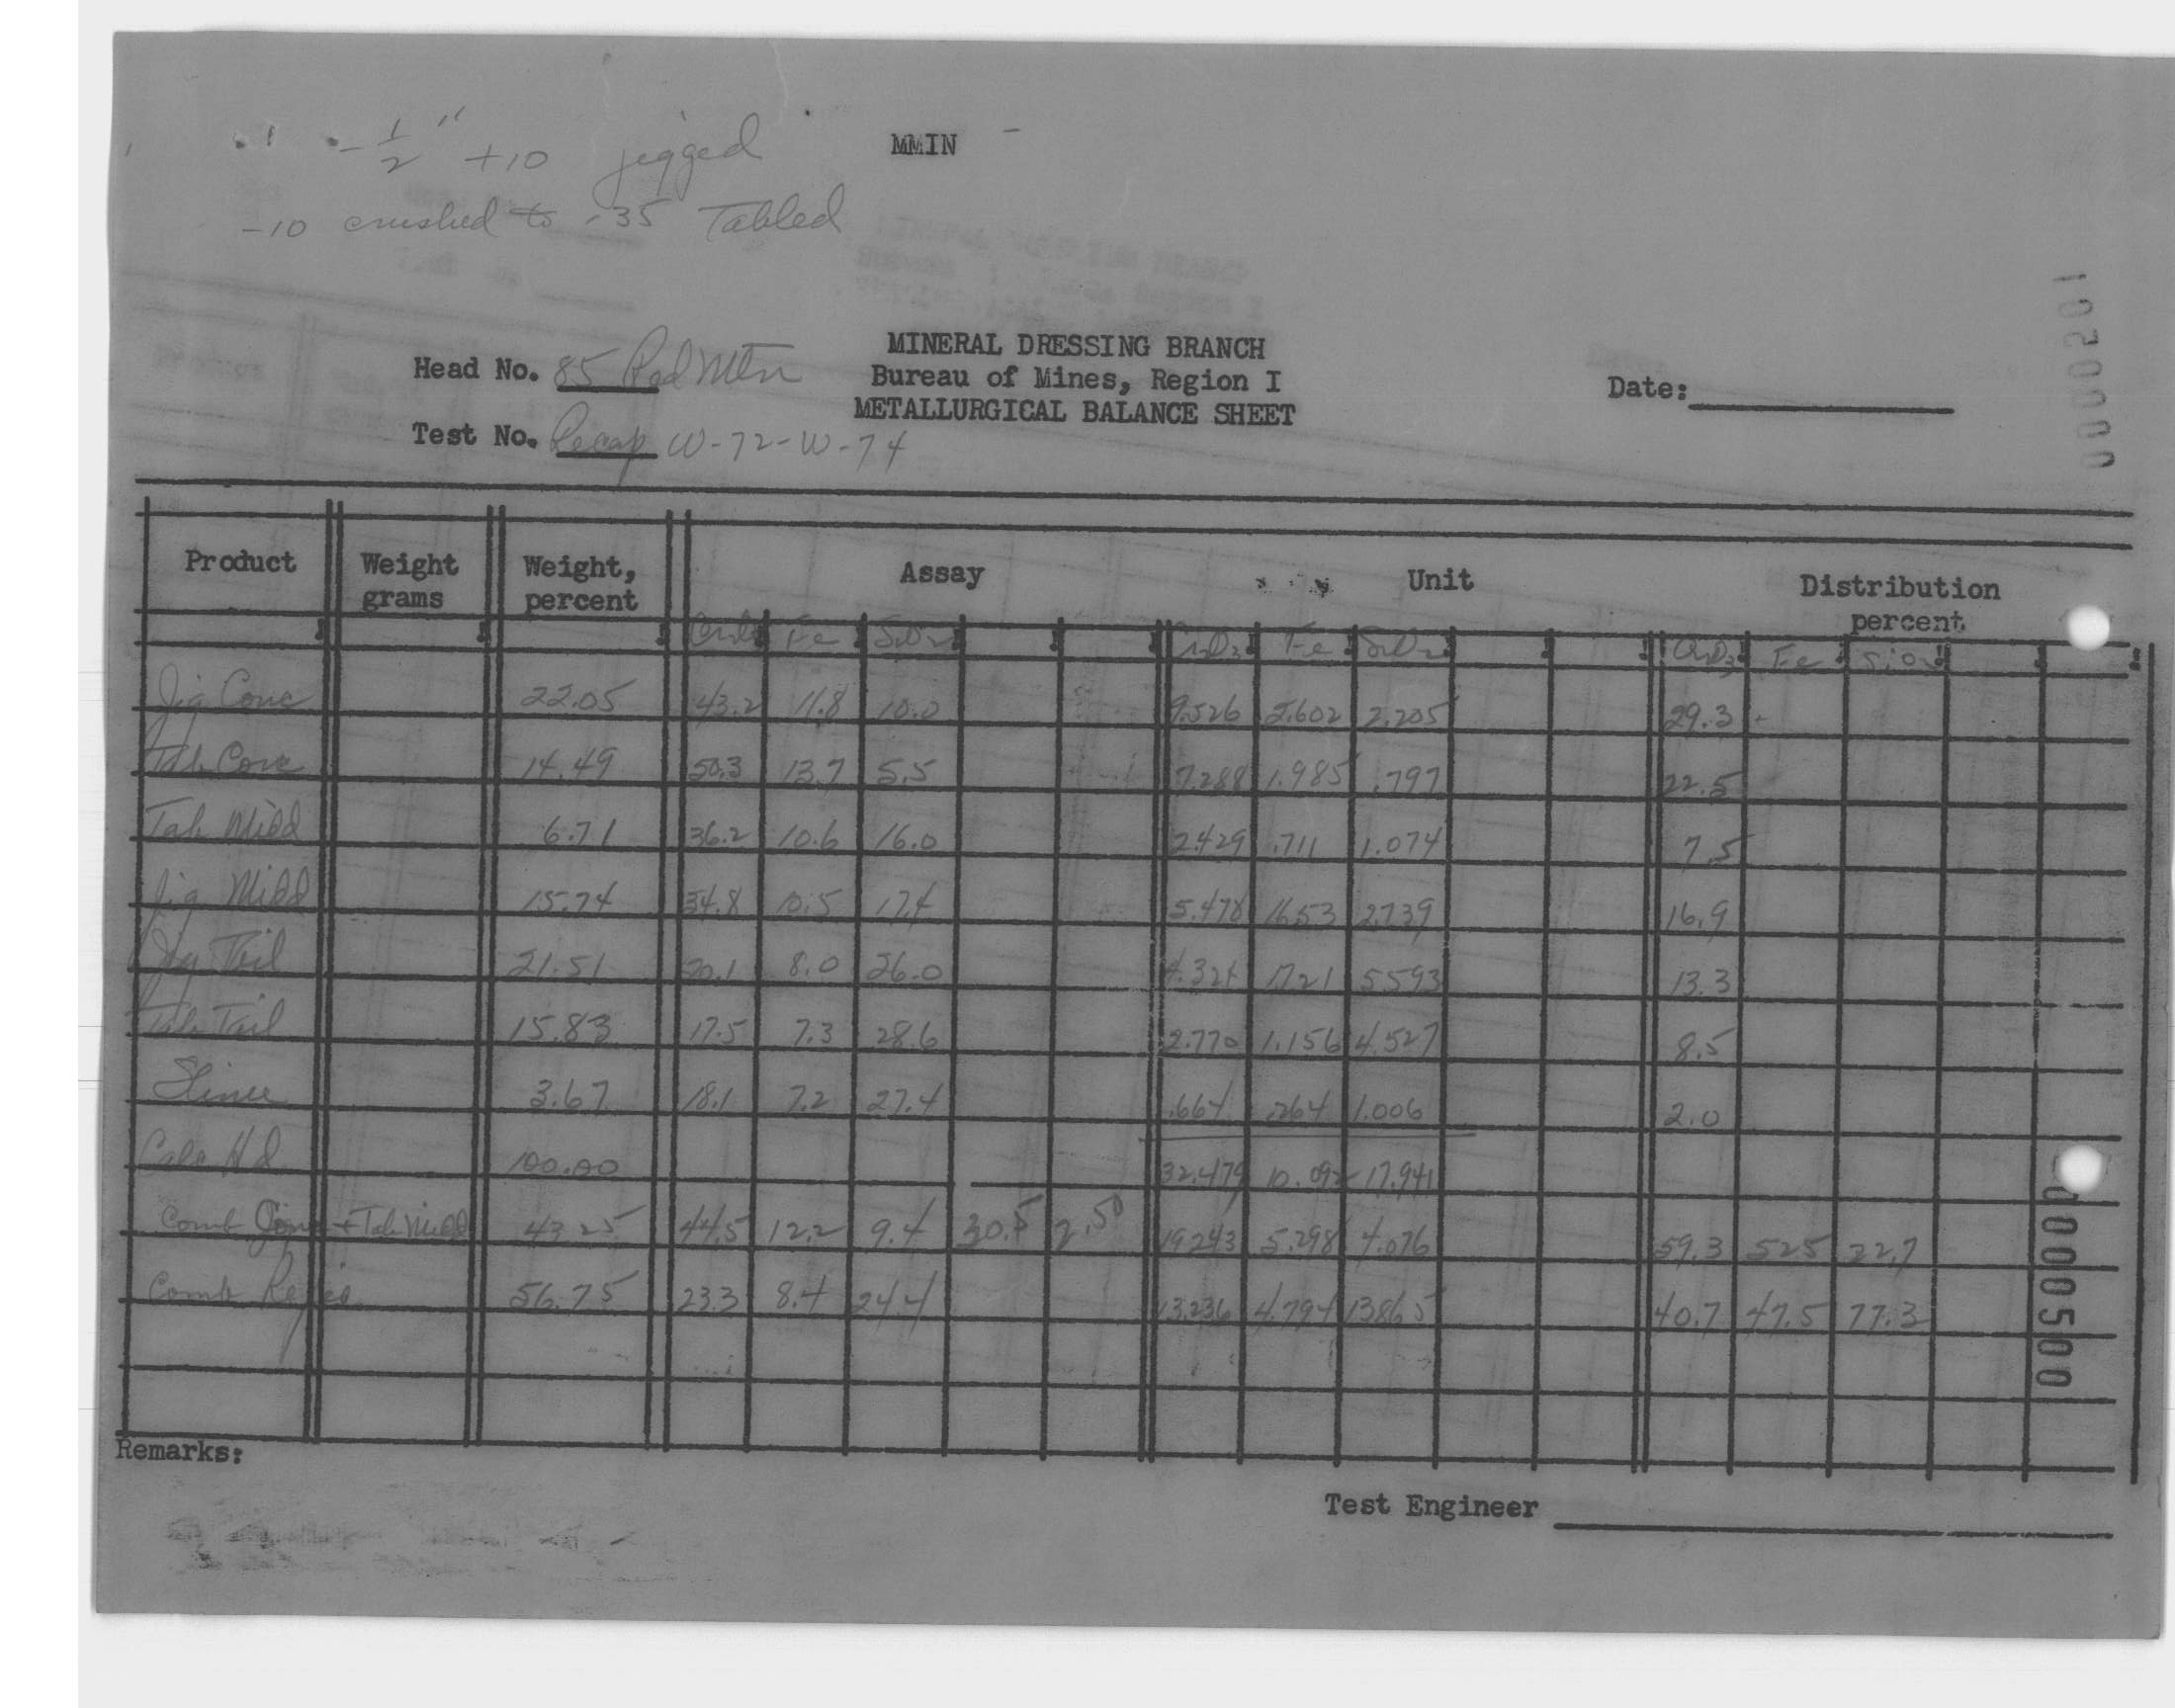 -1/2" +10 jigged
MMIN -
-10 crushed to -35 Tabled
MINERAL DRESSING BRANCH
Head No. 85 Red Mtn
Bureau of Mines, Region I
Date:
METALLURGICAL BALANCE SHEET
Test No. Recap W-72-W-74
1050000
Product Weight grams Weight, percent Assay Unit Distribution percent
Cr2O3 Fe SiO2 Cr2O3 Fe SiO2 Cr2O3 Fe SiO2
Jig Conc 22.05 43.2 11.8 10.0 9.526 2.602 2.205 29.3
Tab Conc 14.49 50.3 13.7 5.5 7.288 1.985 .797 22.5
Tab Midd 6.71 36.2 10.6 16.0 2.429 .711 1.074 7.5
Jig Midd 15.74 34.8 10.5 17.4 5.478 1.653 2.739 16.9
Jig Tail 21.51 20.1 8.0 26.0 4.324 1.721 5.593 13.3
Tab Tail 15.83 17.5 7.3 28.6 2.770 1.156 4.527 8.5
Slime 3.67 18.1 7.2 27.4 .664 .264 1.006 2.0
Calc Hd 100.00 32.479 10.092 17.941
Comb Conc + Tab Midd 43.25 44.5 12.2 9.4 30.5 2.50 19.243 5.298 4.076 59.3 52.5 22.7
Comb Rejec 56.75 23.3 8.4 24.4 13.236 4.794 13.865 40.7 47.5 77.3
0000500
Remarks:
Test Engineer